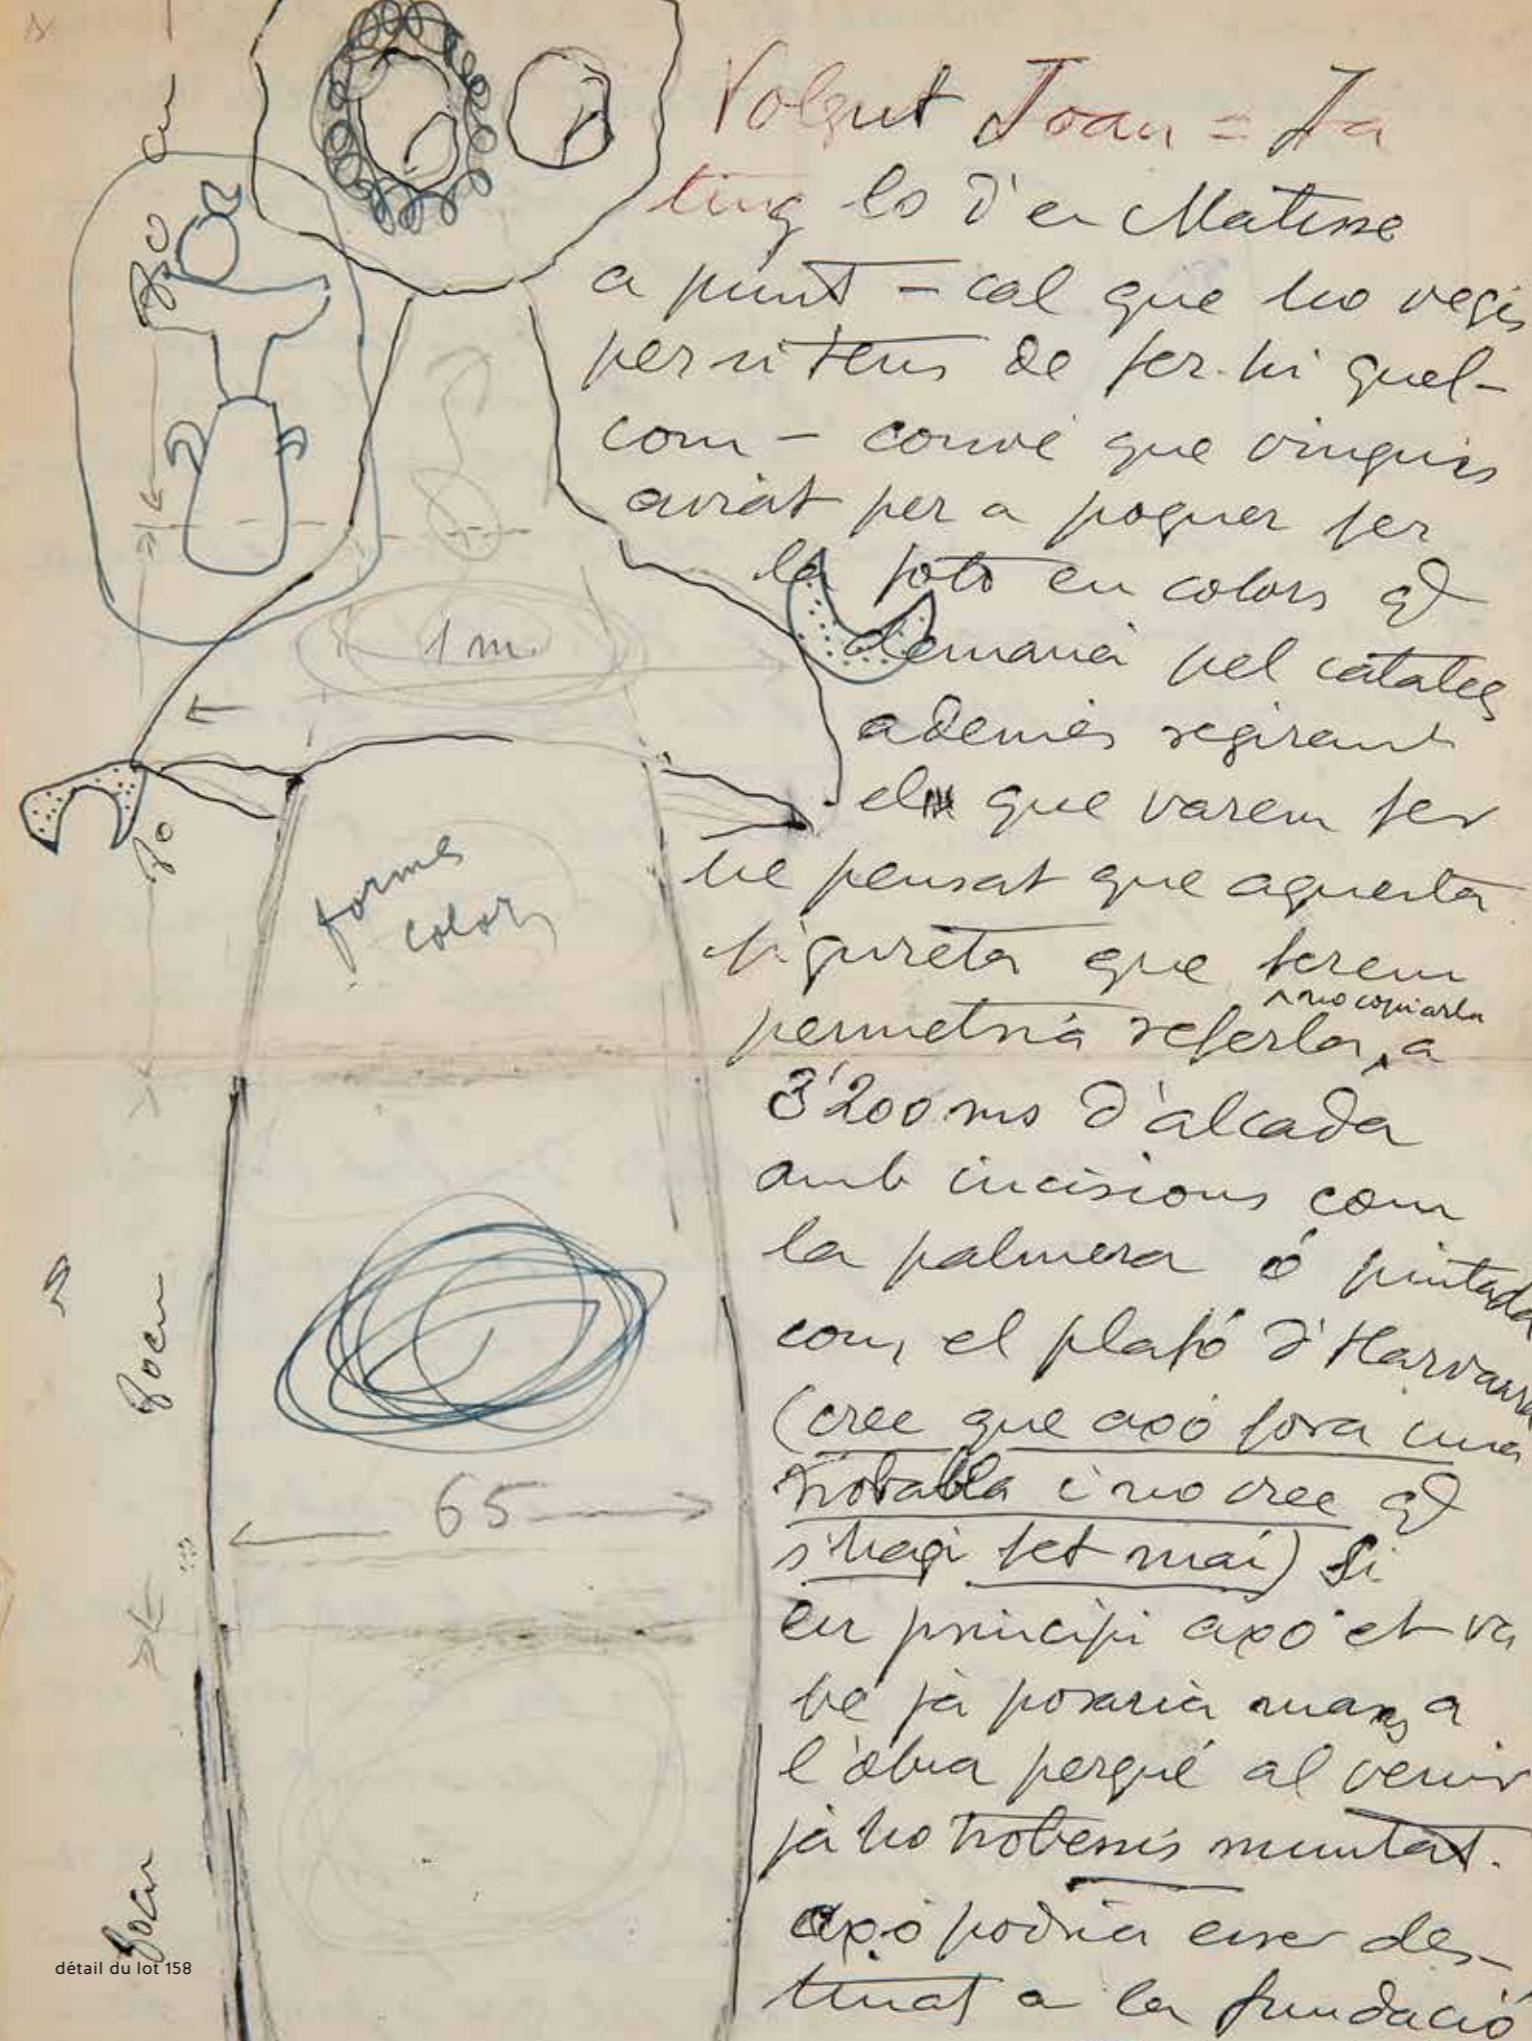 Volgut Joan = Ja
ting lo d'en Matisse
a punt - cal que ho vegis
per si tens de fer-hi quel-
com - convé que vinguis
aviat per a poguer fer
la foto en colors qe
demanà pel catàleg
ademés regirant
el que varem fer
he pensat que aquesta
figureta que ferem
permetria referla, a
^ no copiarla
3'200 ms d'alcada
amb incisions com
la palmera ó pintada
com el plafó d'Harvard
(crec que axó fora una
troballa i no crec qe
s'hagi fet mai) Si
en principi axó et va
bé já posaria mans a
l'obra perqué al venir
já ho trobessis muntat.
axó podria esser des-
tinat a la fundació
80 cm
1 m.
80
formes
colors
80 cm
65
80 cm
détail du lot 158